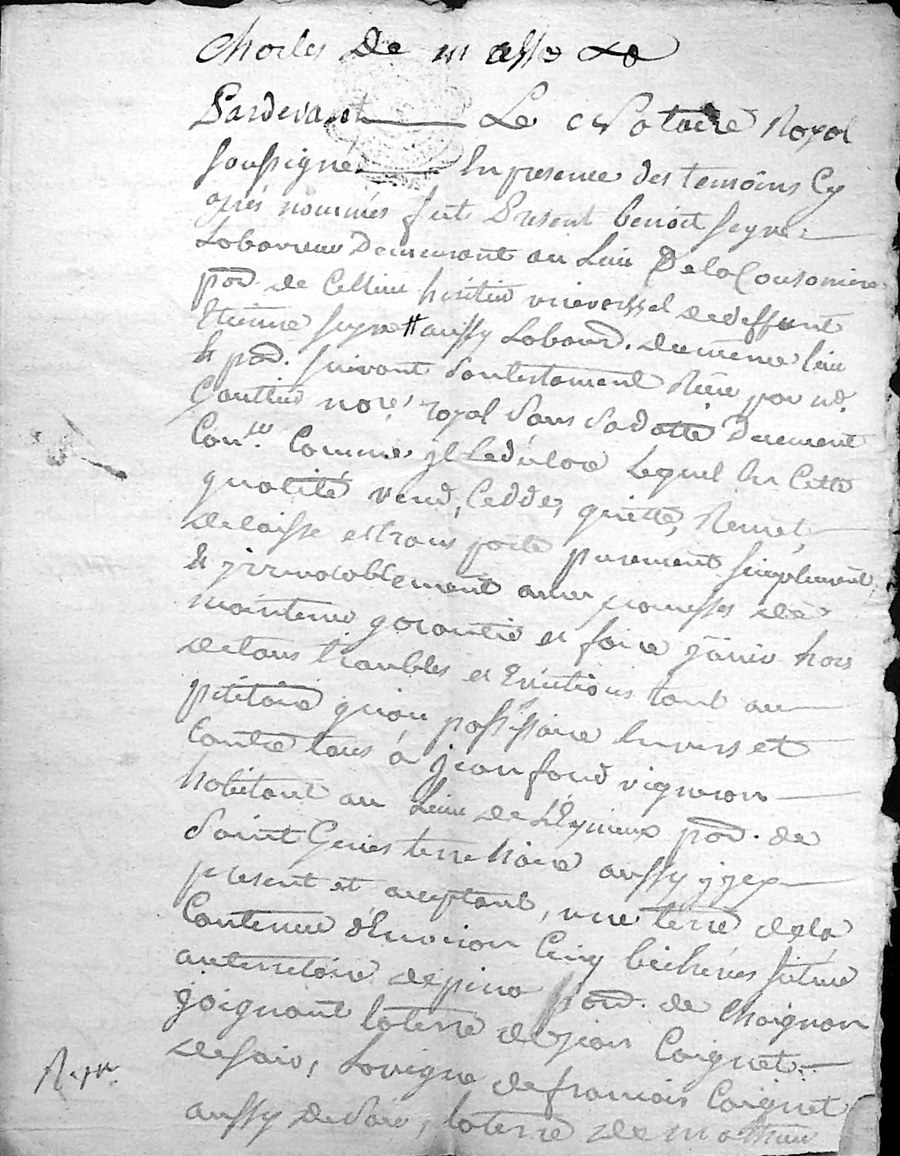 Charles De masso
Pardevant Le Notaire Royal
soussigné En presence des temoins Cy
après nommés fut Present benoit seyve
Laboureur Demeurant au Lieu De la
paɼ. de Cellieu héritier universsel de deffunt
Etienne seyve aussy Labour. de meme lieu
& paɼ. suivant son testament Reçu par me.
Gautier nore. royal Sans Sa datte Deuement
Con.lé Comme jl Ledéclare Lequel En Cette
qualité vend, Cedde, quitte, Remet,
delaisse et transporte purement simplement,
& jrrevocablement avec promesses de
maintenir garantir et faire jouir hors
de tous troubles et Evictions tant au
pétitoire qu'au possessoire Envers et
Contre tous à jean font vigneron
habitant au Lieu de L'Eynieux paɼ. de
Saint Genis terre noire aussy jcy
présent et aceptant, une terre de la
Contenue d'Environ Cinq bicherées située
au territoire de paɼ. de Chaignon
joignant la terre de jean Coignet
de soir, La vigne de francois Coignet
aussy de soir, la terre de mathieu